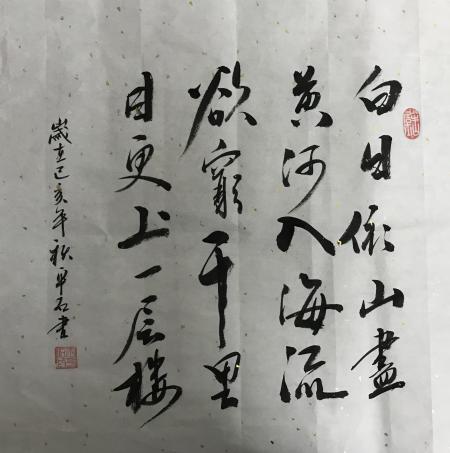 白日依山盡
黄河入海流
欲窮千里
目更上一层楼
歲在己亥年秋早石書